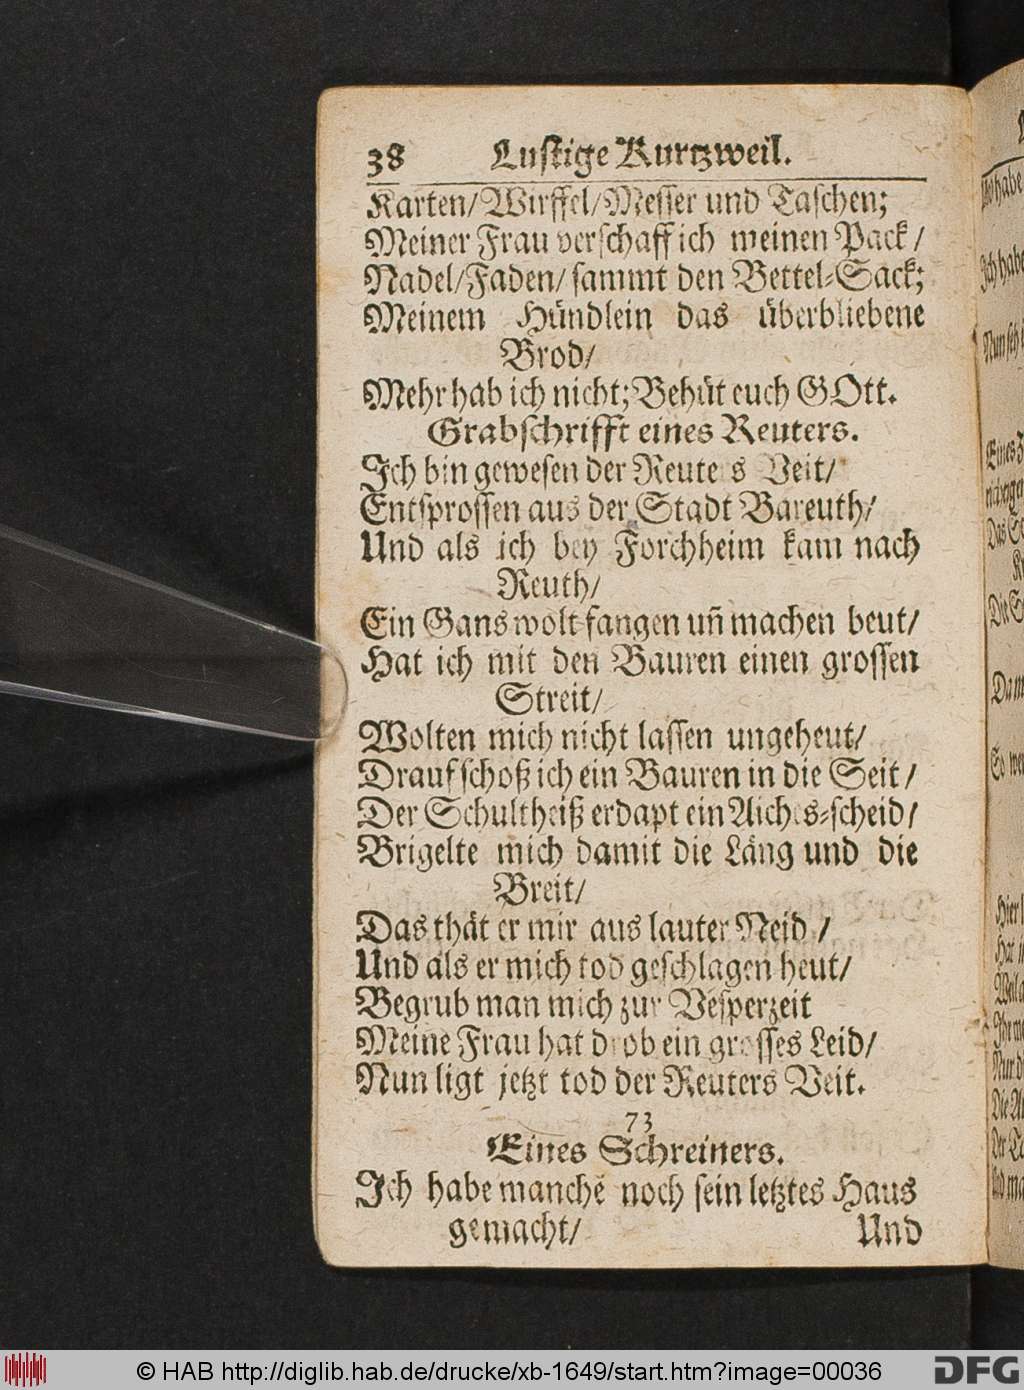 38 Lustige Kurtzweil.
Karten/Wirffel/Messer und Taschen;
Meiner Frau verschaff ich meinen Pack/
Nadel/Faden/sammt den Bettel-Sack;
Meinem Hündlein das überbliebene
Brod/
Mehr hab ich nicht; Behüt euch GOtt.
Grabschrifft eines Reuters.
Ich bin gewesen der Reuters Veit/
Entsprossen aus der Stadt Bareuth/
Und als ich bey Forchheim kam nach
Reuth/
Ein Gans wolt fangen uñ machen beut/
Hat ich mit den Bauren einen grossen
Streit/
Wolten mich nicht lassen ungeheut/
Drauf schoß ich ein Bauren in die Seit/
Der Schultheiß erdapt ein Aiches-scheid/
Brigelte mich damit die Läng und die
Breit/
Das thät er mir aus lauter Neid/
Und als er mich tod geschlagen heut/
Begrub man mich zur Vesperzeit
Meine Frau hat drob ein grosses Leid/
Nun ligt jetzt tod der Reuters Veit.
73
Eines Schreiners.
Ich habe manche noch sein letztes Haus
gemacht/ Und
© HAB http://diglib.hab.de/drucke/xb-1649/start.htm?image=00036
DFG